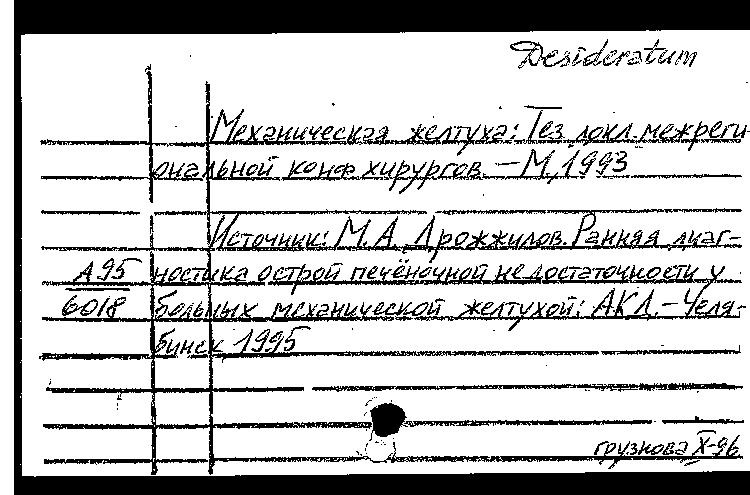 Desideratum
Механическая желтуха: Тез. докл. межреги-
ональной конф хирургов. – М, 1993
Источник: М.А. Дрожжилов. Ранняя диаг-
А95 ностика острой печёночной недостаточности у
6018 больных механической желтухой: АКД. – Челя-
бинск 1995
грузнова X-96.